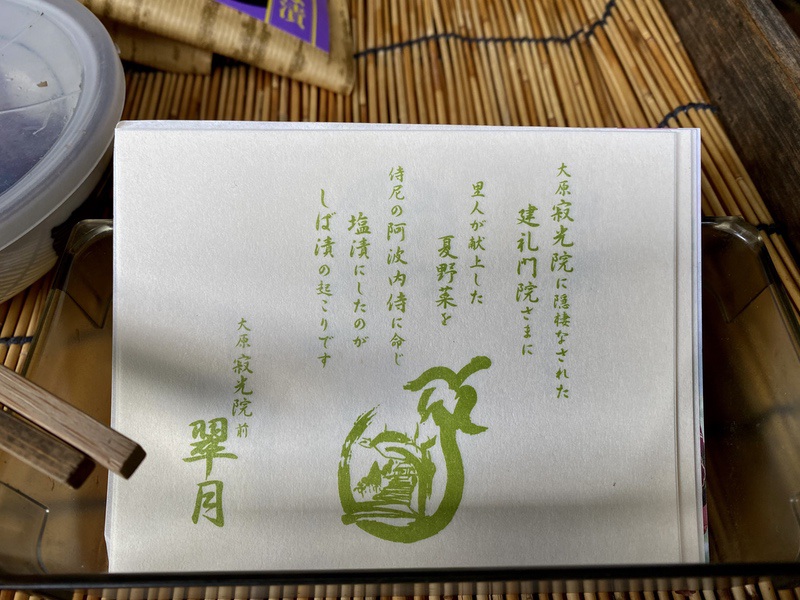 大原寂光院に隠棲なされた
建礼門院さまに
里人が献上した
夏野菜を
侍尼の阿波内侍に命じ
塩漬にしたのが
しば漬の起こりです
大原寂光院前
翠月
漬